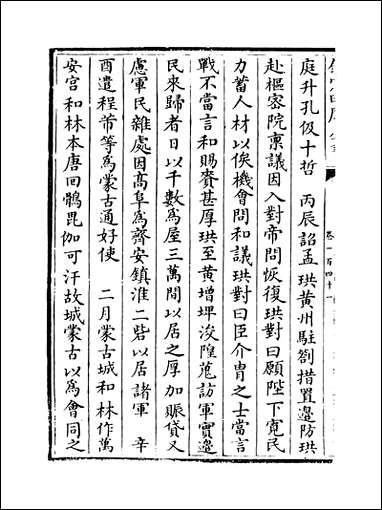 庭升孔伋十哲　丙辰詔孟珙黃州駐劄措置邊防珙
赴樞密院稟議因入對帝問恢復珙對曰願陛下寛民
力蓄人材以俟機會問和議珙對曰臣介胄之士當言
戰不當言和賜賚甚厚珙至黃增埤浚隍蒐訪軍實邊
民來歸者日以千數爲屋三萬間以居之厚加賑貸又
慮軍民雜處因高阜爲齊安鎮淮二砦以居諸軍　辛
酉遣程芾等爲蒙古通好使　二月蒙古城和林作萬
安宮和林本唐回鶻毘伽可汗故城蒙古以爲會同之